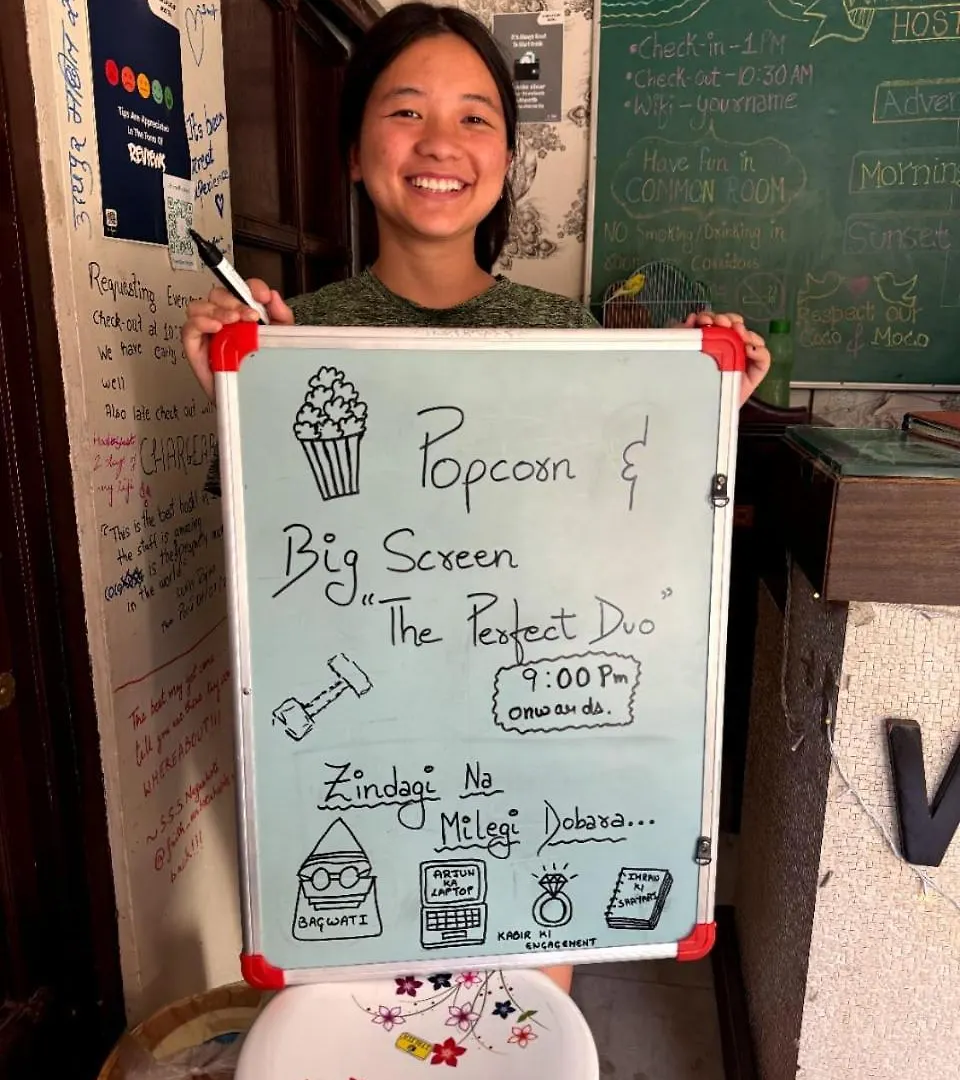 Popcorn &
Big Screen
"The Perfect Duo"
9:00 Pm
onwards.
Zindagi Na
Milegi Dobara...
BAGWATI
ARJUN
KA
LAPTOP
KABIR KI
ENGAGEMENT
IMRAN
KI
SHAYARI
Tips Are Appreciated
In The Form Of
REVIEWS
It's been
Requesting Every
check-out at 10:
We have early
well
Also late check out will
CHARGEAB
2 days of
my life
"This is the best host
the staff is amazing
is the property
in the world.
The best my got some
tell you we there
WHEREABOUT!!!
HOST
•Check-in-1PM
•Check-out-10:30AM
•Wifi-yourname
Adven
Have fun in
COMMON ROOM
Mornin
NO Smoking/Drinking in
Corridors
Sunset
espect our
Coco & Moco
V